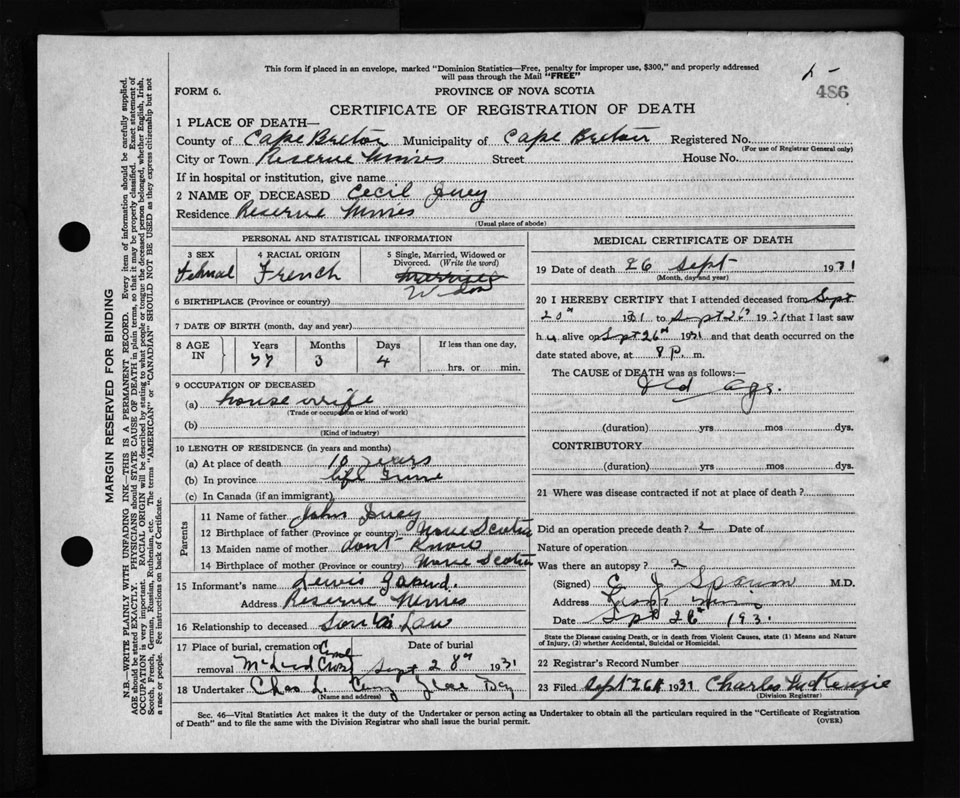 This form if placed in an envelope, marked "Dominion Statistics—Free, penalty for improper use, $300," and properly addressed
will pass through the Mail "FREE"
486
FORM 6.
PROVINCE OF NOVA SCOTIA
CERTIFICATE OF REGISTRATION OF DEATH
MARGIN RESERVED FOR BINDING
N.B.—WRITE PLAINLY WITH UNFADING INK—THIS IS A PERMANENT RECORD. Every item of information should be carefully supplied.
AGE should be stated EXACTLY. PHYSICIANS should STATE CAUSE OF DEATH in plain terms, so that it may be properly classified. Exact statement of
OCCUPATION is very important. RACIAL ORIGIN will be described by stating to what people or tongue the deceased person belonged, whether English, Irish,
Scotch, French, German, Russian, Ruthenian, etc. The terms "AMERICAN" or "CANADIAN" SHOULD NOT BE USED as they express citizenship but not
a race or people. Fee instructions on back of Certificate.
1 PLACE OF DEATH—
County of Cape Breton Municipality of Cape Breton Registered No.
(For use of Registrar General only)
City or Town Reserve Mines Street House No.
If in hospital or institution, give name
2 NAME OF DECEASED Cecil
Residence Reserve Mines
(Usual place of abode)
PERSONAL AND STATISTICAL INFORMATION
3 SEX 4 RACIAL ORIGIN 5 Single, Married, Widowed or
Divorced. (Write the word)
Femal French married
Widow
6 BIRTHPLACE (Province or country)
7 DATE OF BIRTH (month, day and year)
8 AGE IN Years Months Days If less than one day,
77 3 4 hrs. or min.
9 OCCUPATION OF DECEASED
(a) house wife
(Trade or occupation or kind of work)
(b)
(Kind of industry)
10 LENGTH OF RESIDENCE (in years and months)
(a) At place of death 10 years
(b) In province life time
(c) In Canada (if an immigrant)
Parents
11 Name of father John
12 Birthplace of father (Province or country) Nova Scotia
13 Maiden name of mother dont Know
14 Birthplace of mother (Province or country) Nova Scotia
15 Informant's name Lewis
Address Reserve Mines
16 Relationship to deceased Son in Law
17 Place of burial, cremation or Date of burial
removal Sept 28th 1931
18 Undertaker Chas L. Glace Bay
(Name and address)
MEDICAL CERTIFICATE OF DEATH
19 Date of death 26 Sept 1931
(Month, day and year)
20 I HEREBY CERTIFY that I attended deceased from Sept
20th 1931 to Sept 26th 1931 that I last saw
her alive on Sept 26th 1931 and that death occurred on the
date stated above, at 8 P. m.
The CAUSE of DEATH was as follows:—
Old Age.
(duration) yrs mos dys.
CONTRIBUTORY
(duration) yrs mos dys.
21 Where was disease contracted if not at place of death?
Did an operation precede death? Date of
Nature of operation
Was there an autopsy?
(Signed) M.D.
Address
Date Sept 26th 1931
State the Disease causing Death, or in death from Violent Causes, state (1) Means and Nature
of Injury, (2) whether Accidental, Suicidal or Homicidal.
22 Registrar's Record Number
23 Filed Sept 26th 1931 Charles McKenzie
(Division Registrar)
Sec. 46—Vital Statistics Act makes it the duty of the Undertaker or person acting as Undertaker to obtain all the particulars required in the "Certificate of Registration
of Death" and to file the same with the Division Registrar who shall issue the burial permit.
(OVER)